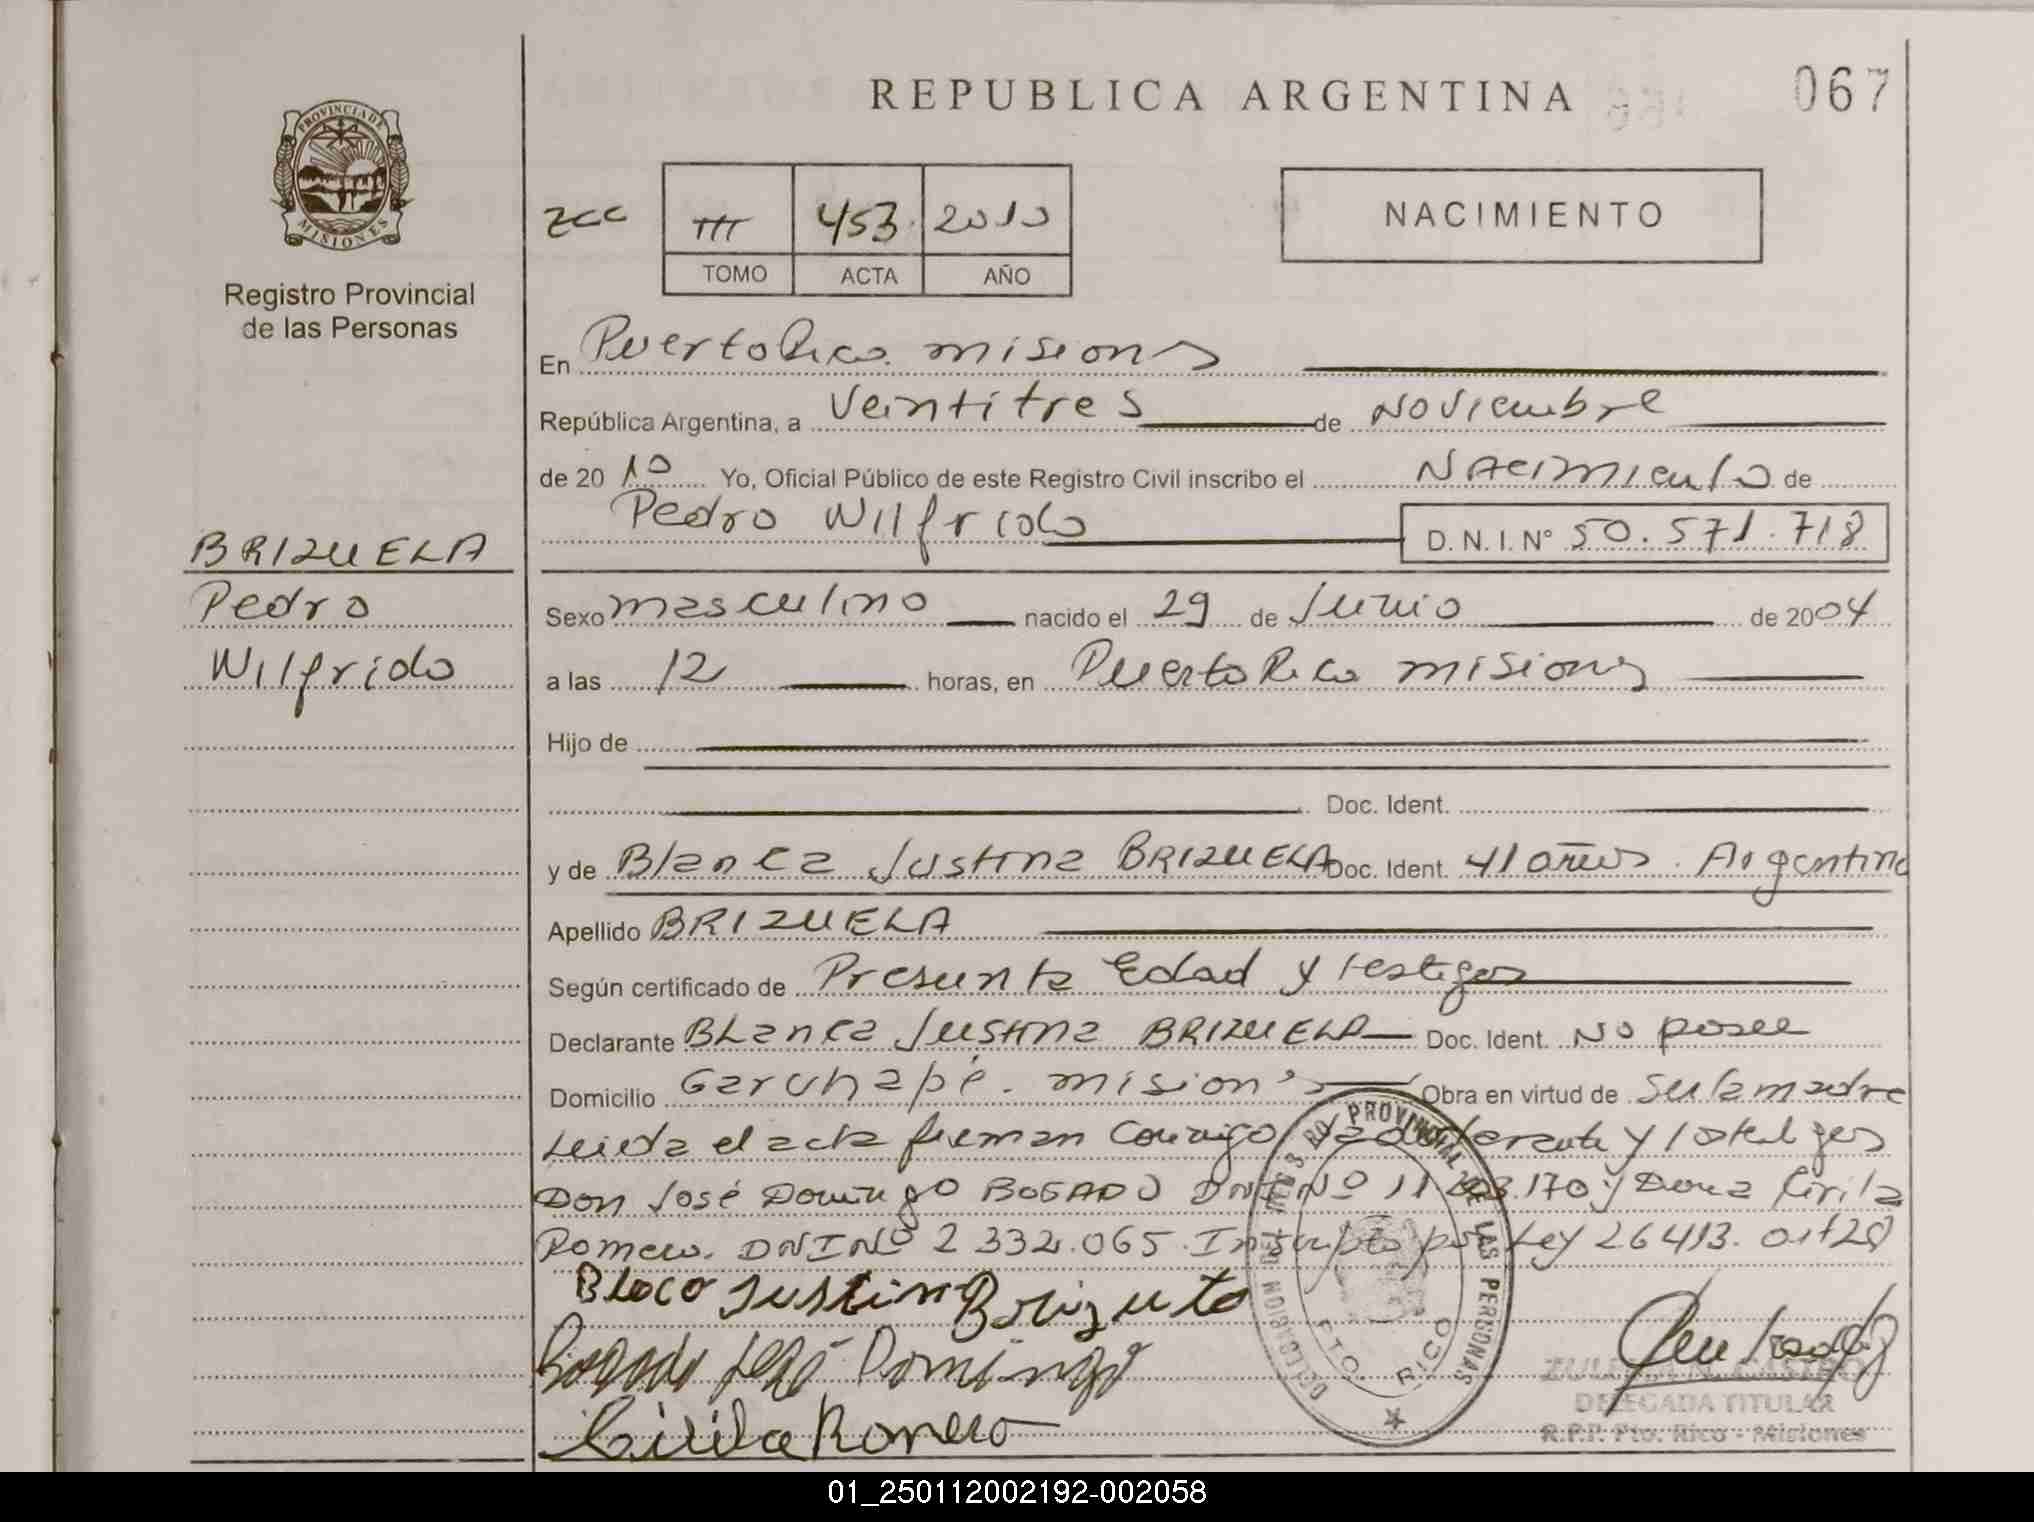 REPUBLICA ARGENTINA
067
PROVINCIA DE
MISIONES
Registro Provincial
de las Personas
zcc III 453 2010
TOMO ACTA AÑO
NACIMIENTO
En Puerto Rico. misiones
República Argentina, a Veintitres de Noviembre
de 20 10 Yo, Oficial Público de este Registro Civil inscribo el NAcimiento de
Pedro Wilfrido D. N. I. Nº 50.571.718
BRIZUELA
Pedro
Wilfrido
Sexo masculino nacido el 29 de Junio de 2004
a las 12 horas, en Puerto Rico misiones
Hijo de
Doc. Ident.
y de Blanca Justina BRIZUELA Doc. Ident. 41 años. Argentina
Apellido BRIZUELA
Según certificado de Presunta Edad y testigos
Declarante BLanca Justina BRIZUELA Doc. Ident. No posee
Domicilio Garuhapé. misiones Obra en virtud de Ser la madre
Leida el acta firman conmigo la declarante y testigos
Don José Domingo BOGADO DNI Nº 11 .170 y Dona Cirila
Romero. DNI Nº 2 332.065. Inscripto por Ley 26413. art 28
Blaca Justina Brizuela
Bogado José Domingo
Cirila Romero
DELEGACION DEL REGISTRO PROVINCIAL DE LAS PERSONAS
PTO. RICO
CASTRO
DELEGADA TITULAR
R.P.P. Pto. Rico - Misiones
01_250112002192-002058